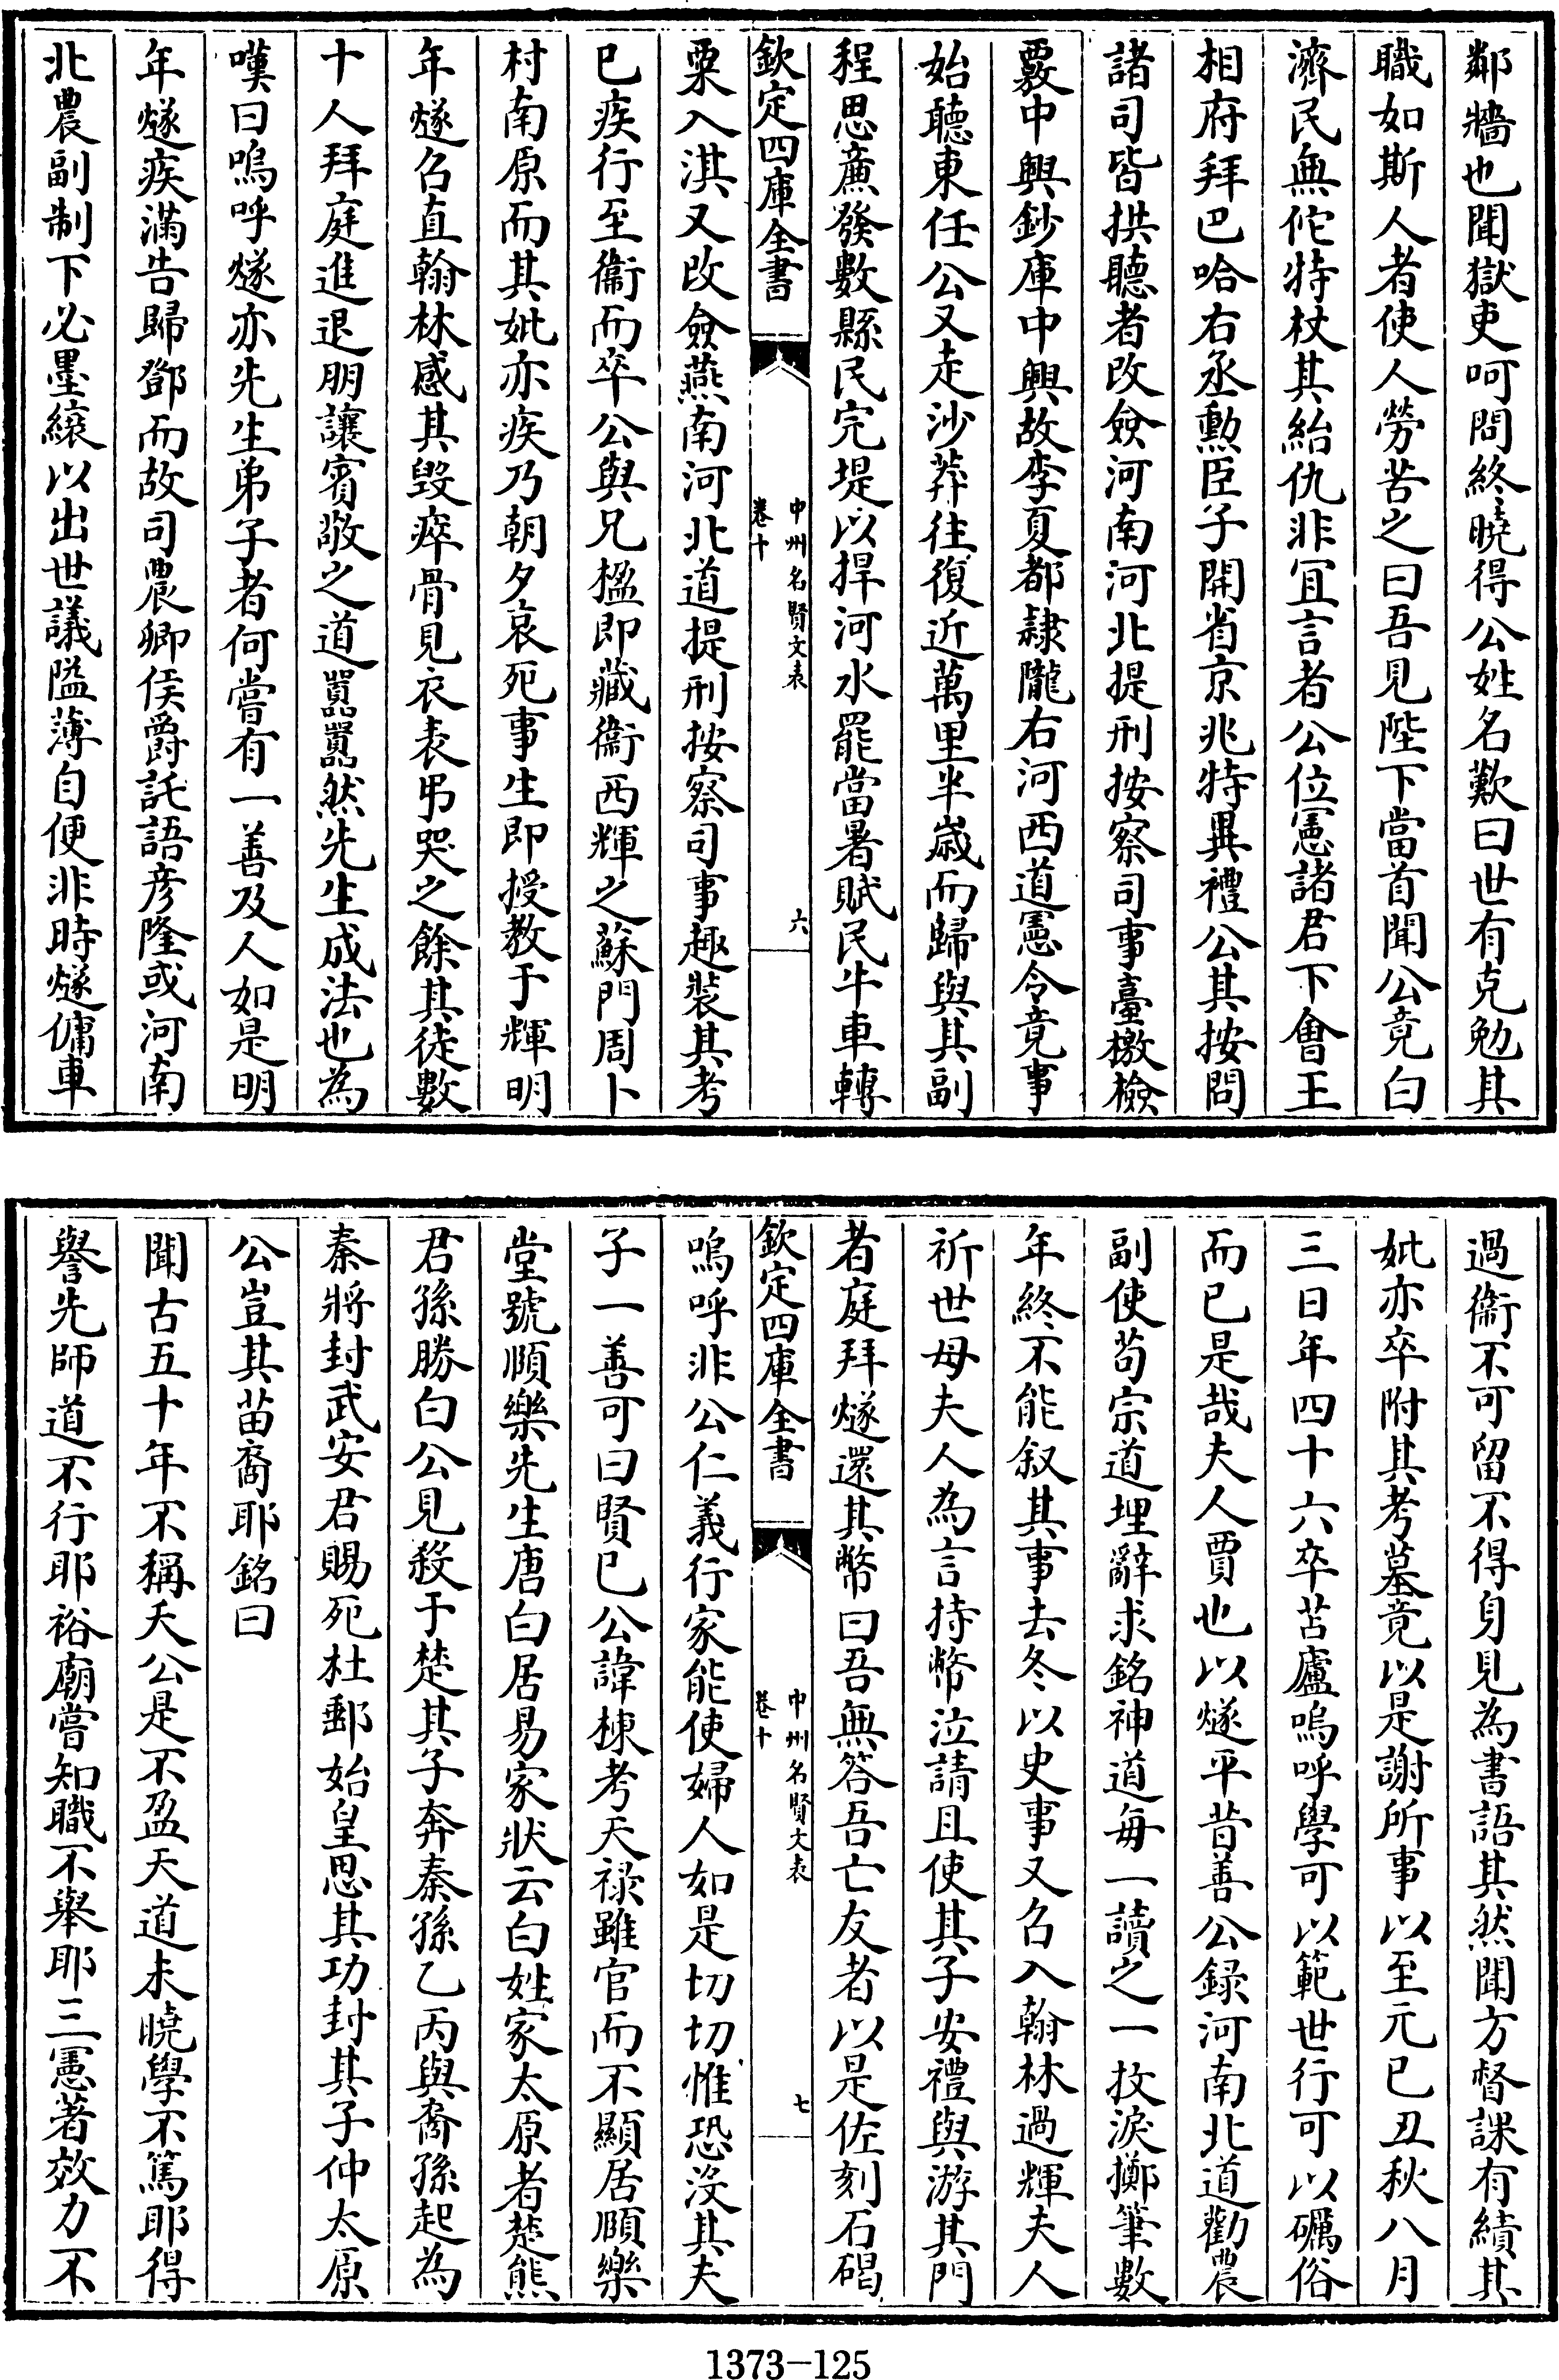 鄰牆也聞獄吏呵問終曉得公姓名歎曰世有克勉其
職如斯人者使人勞苦之曰吾見陛下當首聞公竟白
濟民無佗特杖其紿仇非宜言者公位憲諸君下會王
相府拜巴哈右丞勲臣子開省京兆特異禮公其按問
諸司皆拱聽者改僉河南河北提刑按察司事臺檄檢
覈中興鈔庫中興故李夏都隷隴右河西道憲令竟事
始聽東任公又走沙莽往復近萬里半歳而歸與其副
程思亷發數縣民完堤以捍河水罷當暑賦民牛車轉
欽定四庫全書
中州名賢文表
卷十
六
粟入淇又改僉燕南河北道提刑按察司事趣裝其考
已疾行至衞而卒公與兄楹即藏衞西輝之蘇門周卜
村南原而其妣亦疾乃朝夕哀死事生即授教于輝明
年燧召直翰林感其毀瘁骨見衣表弔哭之餘其徒數
十人拜庭進退朋讓賓敬之道嚚嚚然先生成法也為
嘆曰嗚呼燧亦先生弟子者何嘗有一善及人如是明
年燧疾滿告歸鄧而故司農卿侯爵託語彦隆或河南
北農副制下必墨縗以出世議隘薄自便非時燧傭車
過衞不可留不得身見為書語其然聞方督課有績其
妣亦卒附其考墓竟以是謝所事以至元己丑秋八月
三日年四十六卒苫廬嗚呼學可以範世行可以礪俗
而已是哉夫人賈也以燧平昔善公録河南北道勸農
副使茍宗道埋辭求銘神道毎一讀之一抆淚擲筆數
年終不能叙其事去冬以史事又召入翰林過輝夫人
祈世母夫人為言持幣泣請且使其子安禮與游其門
者庭拜燧還其幣曰吾無答吾亡友者以是佐刻石碣
欽定四庫全書
中州名賢文表
卷十
七
嗚呼非公仁義行家能使婦人如是切切惟恐沒其夫
子一善可曰賢已公諱棟考天禄雖官而不顯居順樂
堂號順樂先生唐白居易家狀云白姓家太原者楚熊
君孫勝白公見殺于楚其子奔秦孫乙丙與裔孫起為
秦將封武安君賜死杜郵始皇思其功封其子仲太原
公豈其苗裔耶銘曰
聞古五十年不稱夭公是不盈天道未曉學不篤耶得
譽先師道不行耶裕廟嘗知職不舉耶三憲著效力不
1373-125